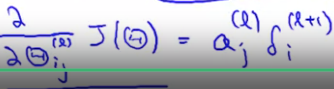 ∂/∂Θ_{ij}^{(l)} J(Θ) = a_j^{(l)} δ_i^{(l+1)}